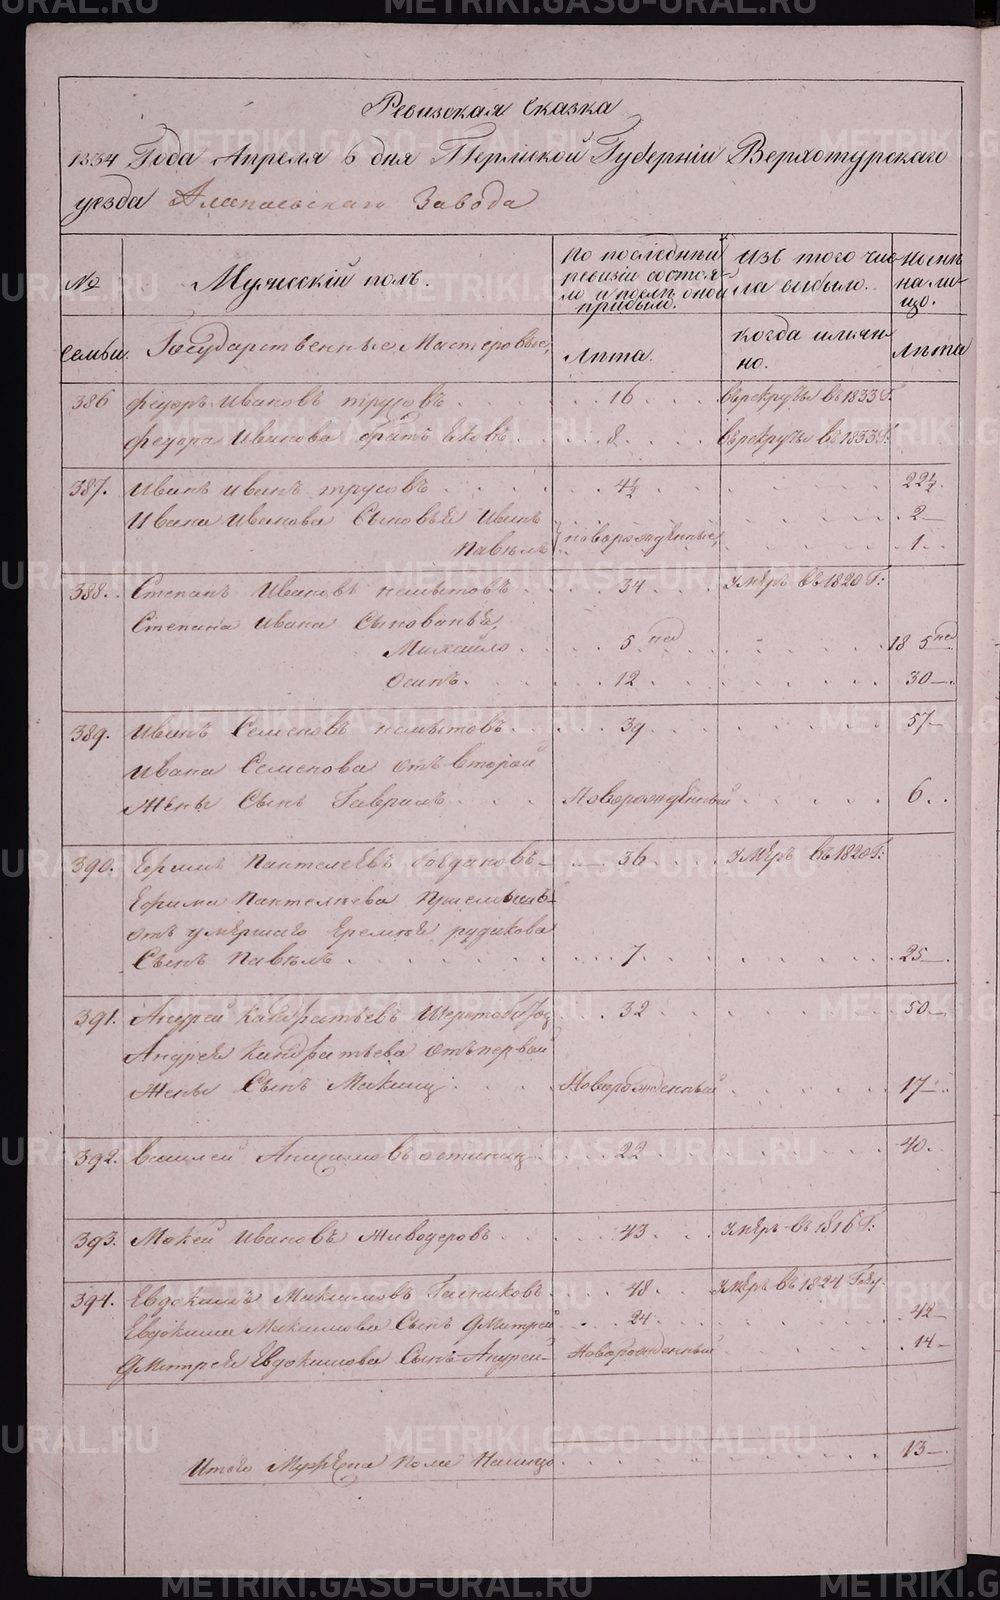 Ревизская Сказка
1834 Года Апреля 6 дня Пермской Губерніи Верхотурскаго
уезда Алапаевскаго Завода
№ семьи.
Мужескій полъ.
Государственные Мастеровые,
По последней ревизіи состояло и после оной прибыло.
Лета.
Изъ того числа выбыло.
когда имянно.
Ныне на лицо.
Лета
386 Федоръ Ивановъ трусовъ 16 въ рекруты въ 1833 Г.
Федора Иванова братъ 8 въ рекруты въ 1833 Г.
387. Иванъ Иванъ трусовъ 4½ 22½.
Ивана Иванова Сыновья Иванъ 2
Павелъ новорожденные, 1
388. Степанъ Ивановъ 34 умеръ въ 1820 Г:
Степана Ивана Сыновья,
Михайло 5 нед 18 5 нед
Осипъ 12 30
389. Иванъ Семеновъ 39 57
Ивана Семенова отъ второй
Жены Сынъ Гаврилъ Новорожденный 6
390. Ефимъ Пантелеевъ 36 умеръ въ 1820 Г:
Ефима Пантелеева
отъ умершаго Еремея рудакова
Сынъ Павелъ 7 25
391. Андрей 32 50
Андрея отъ первой
Жены Сынъ Новорожденный 17
392. Василей 22 40
393. Мокей Ивановъ Живодеровъ 43 умеръ въ 1816 Г:
394. Евдокимъ Максимовъ 48 умеръ въ 1824 Году.
Евдокима Максимова Сынъ Дмитрей 24 42
Дмитрея Евдокимова Сынъ Андрей Новорожденный 14
Итого Мужеска Пола Налицо 13
METRIKI.GASO-URAL.RU